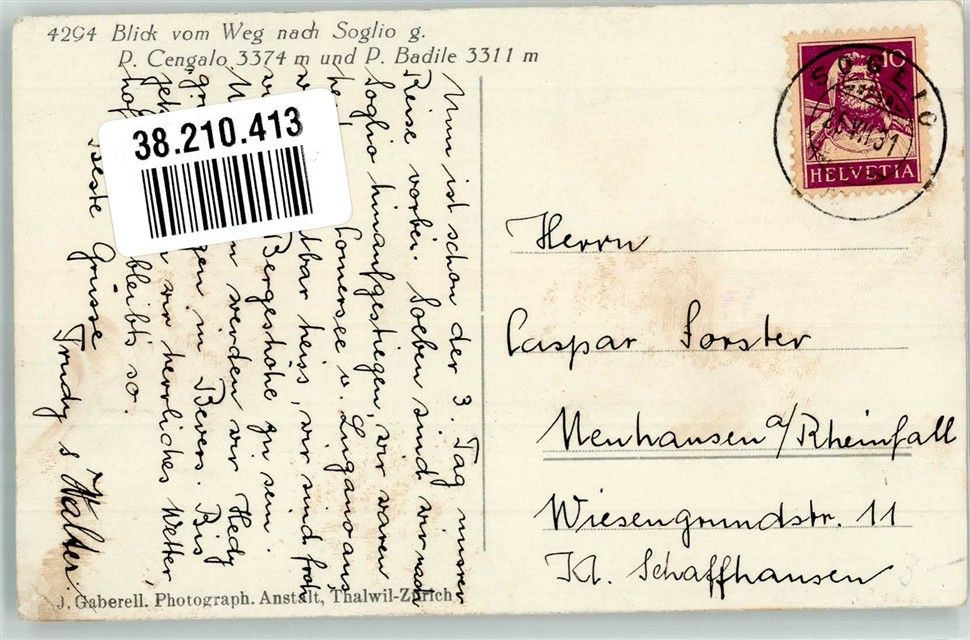 4294 Blick vom Weg nach Soglio g.
P. Cengalo 3374 m und P. Badile 3311 m
38.210.413
10
SOGLIO
VII.31
HELVETIA
Nun ist schon der 3. Tag unsrer
Reise vorbei. Soeben sind wir nach
Soglio hinaufgestiegen, wir waren
Comersee v. Lugano aus
heiss, wir sind froh
Bergeshöhe zu sein.
werden wir Hedy
in Bevers. Bis
wir herrliches Wetter,
bleibts so.
Beste Grüsse
Trudy & Walter.
Herrn
Caspar Forster
Neuhausen a/Rheinfall
Wiesengrundstr. 11
Kt. Schaffhausen
3-
J. Gaberell. Photograph. Anstalt, Thalwil-Zürich